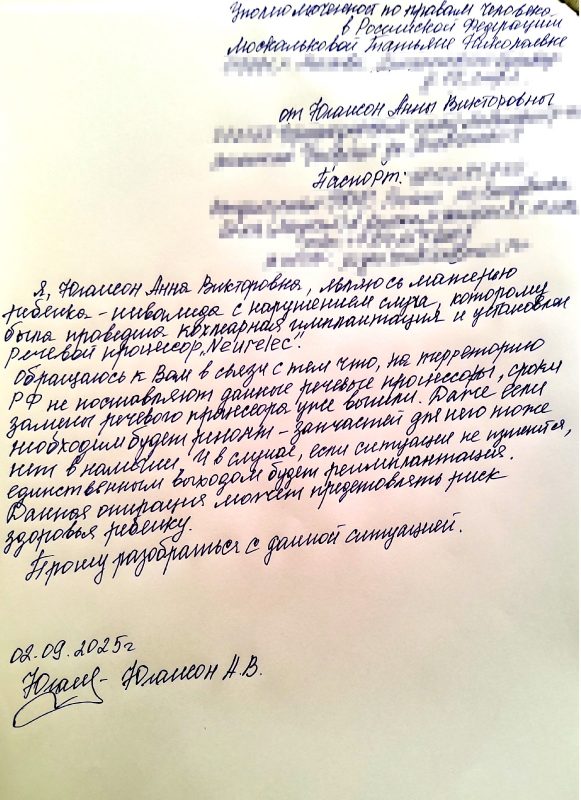 Уполномоченност по правам человека
в Российской Федерации
Москальковой Татьяне Николаевне
от Югансон Анны Викторовны
Паспорт:
Я, Югансон Анна Викторовна, являюсь матерью
ребенка-инвалида с нарушением слуха, которому
была проведена кохлеарная имплантация и установлен
речевой процессор „Neurelec".
Обращаюсь к Вам в связи с тем что, на территорию
РФ не поставляют данные речевые процессоры, сроки
замены речевого процессора уже вышли. Даже если
необходим будет ремонт - запчастей для него тоже
нет в наличии. И в случае, если ситуация не изменится,
единственным выходом будет реимплантация.
Данная операция может предстовлять риск
здоровья ребенку.
Прошу разобраться с данной ситуацией.
02.09.2025г
Югансон А.В.